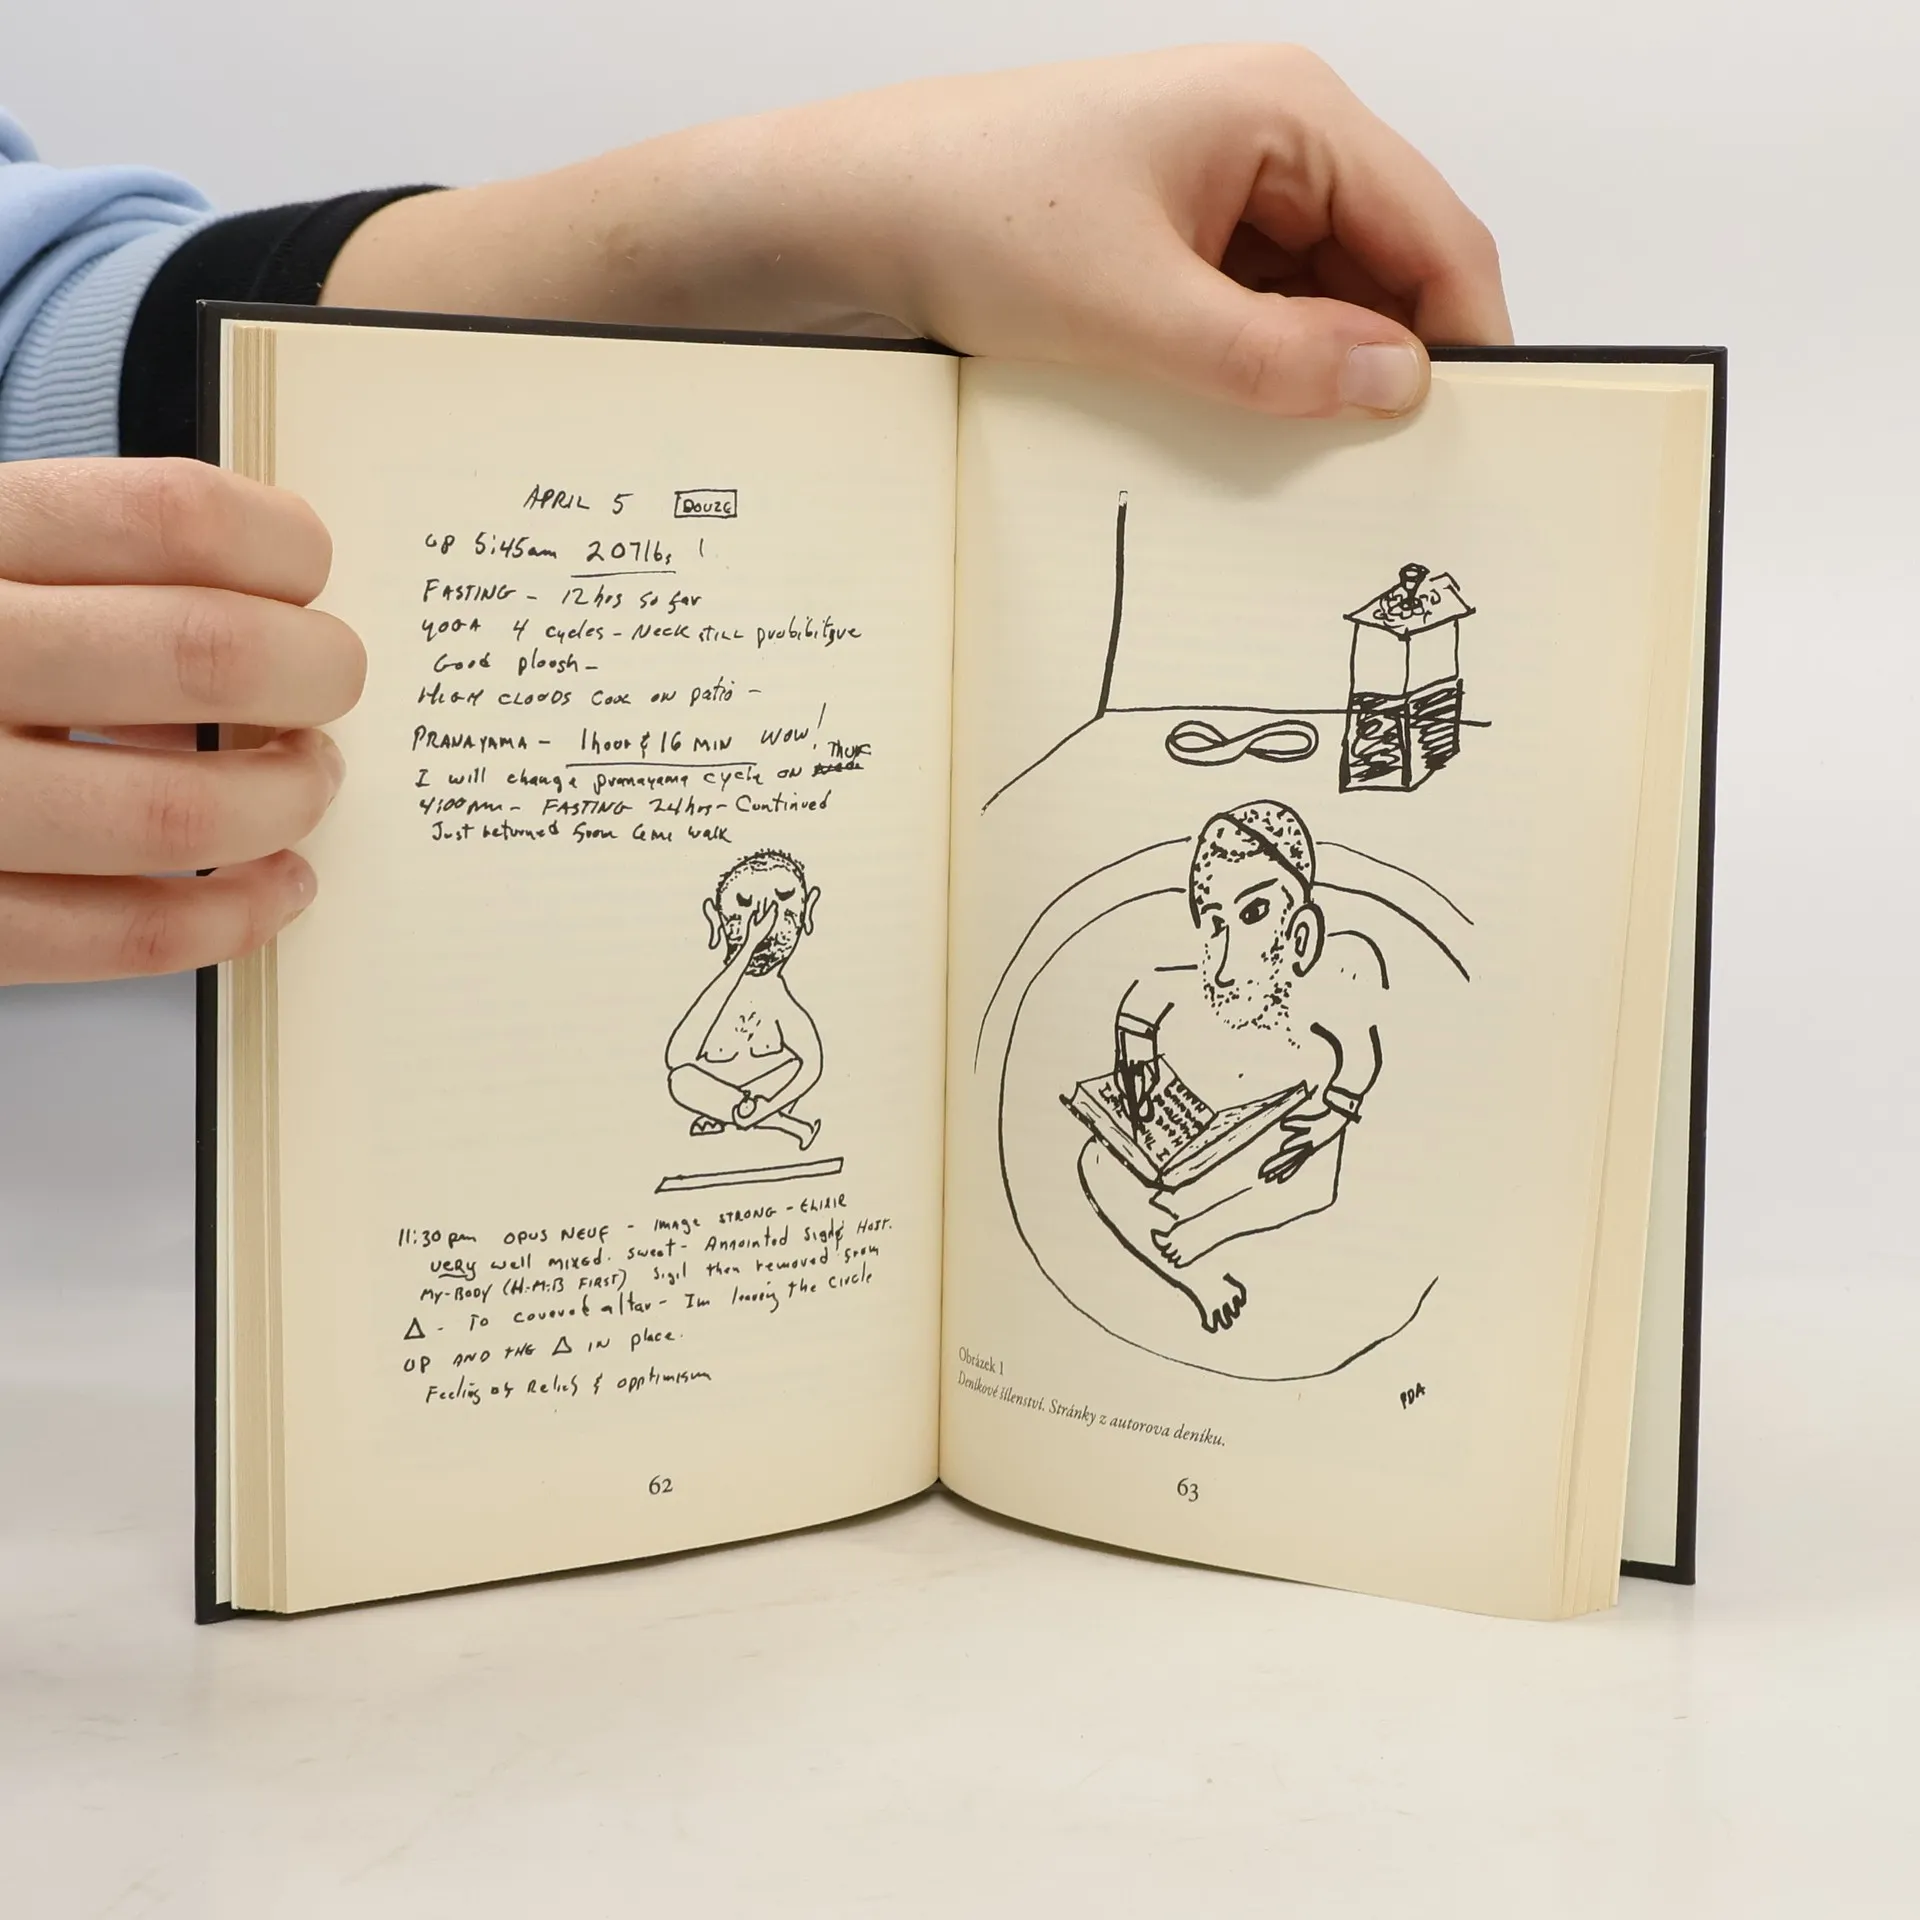 APRIL 5 DOUZE
UP 5:45am 207lbs !
FASTING - 12 hrs so far
YOGA 4 cycles - Neck still
Good ploosh -
HIGH CLOUDS COOL ON patio -
PRANAYAMA - 1 hour & 16 MIN WOW!
I will change pranayama cycle ON THUR
4:00 pm - FASTING 24 hrs - Continued
Just returned from walk
11:30 pm OPUS NEUF - Image STRONG - ELIXIR
VERY well MIXED. sweet - Annointed Sigil & Host.
MY-BODY (H.M.B FIRST) Sigil then removed from
△ - To covered altar - Im leaving the Circle
UP AND THE △ IN place.
Feeling of Relief & opptimism
Obrázek 1
Deníkové šílenství. Stránky z autorova deníku.
PDA
62
63